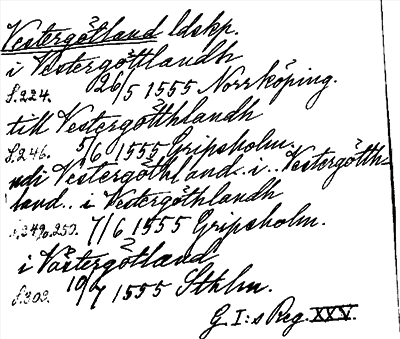 Vestergötland ldskp.
i Vestergöttlandh
s. 224. 26/5 1555 Norrköping.
till Vestergötthlandh
s. 246. 5/6 1555 Gripsholm.
udi Vestergöthland.. i.. Vestergötth-
land.. i Vestergöthlandh
s. 249, 250. 7/6 1555 Gripsholm.
i Västergötland
s. 303. 10/7 1555 Sthlm.
G. I:s Reg. XXV.